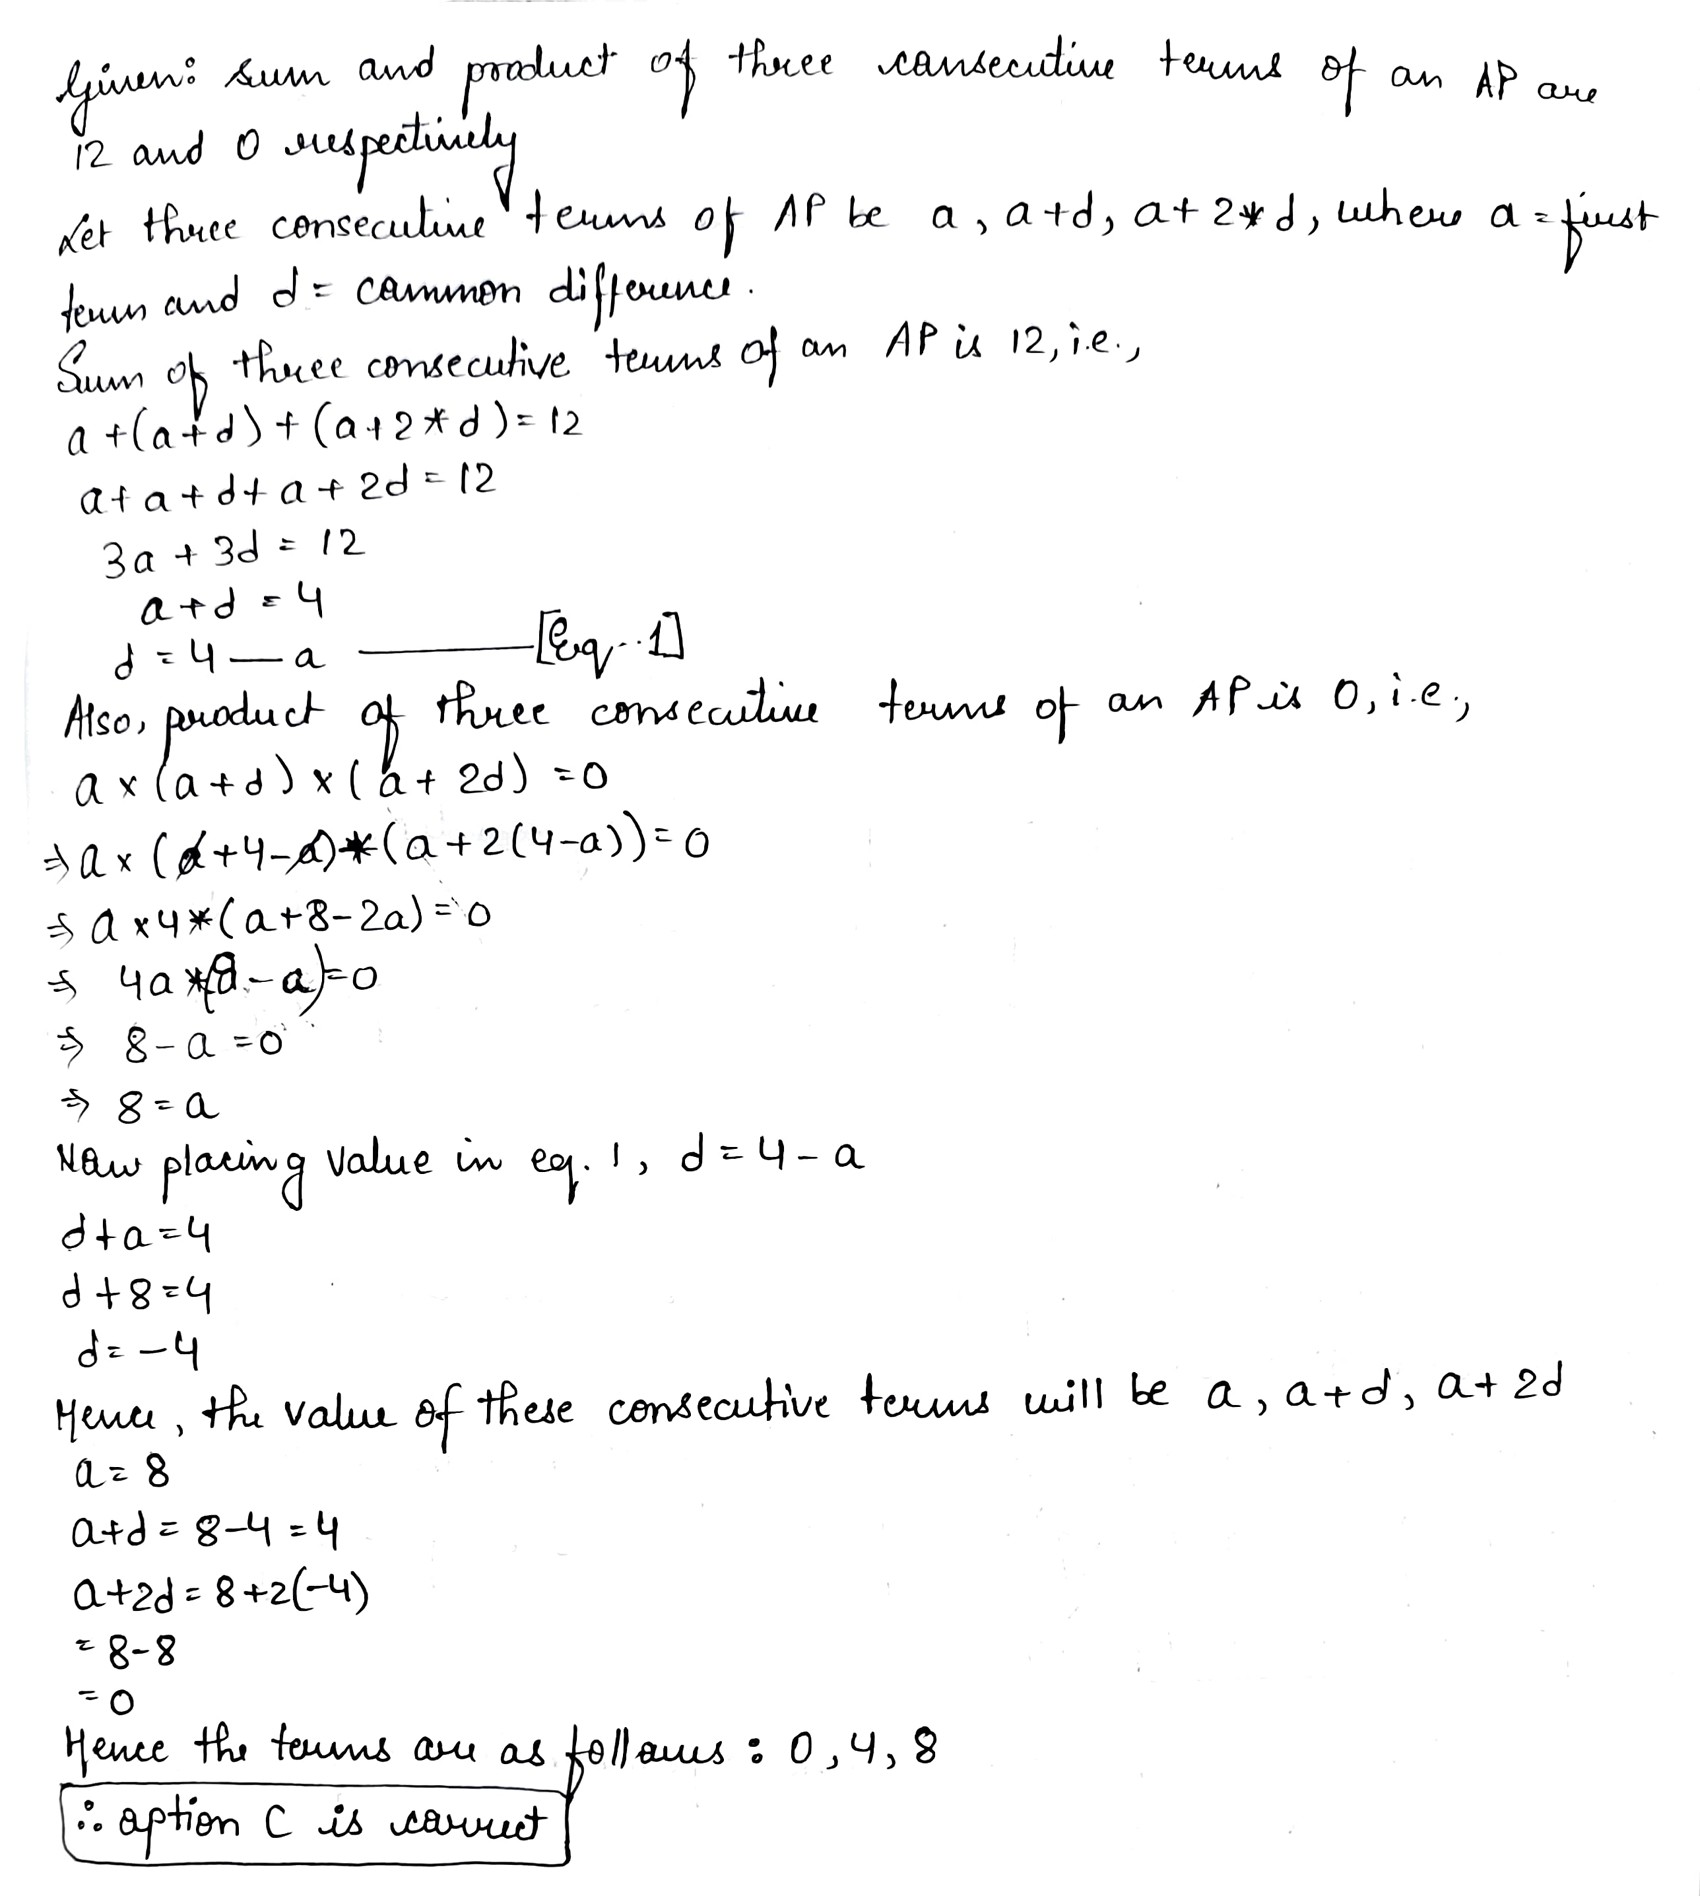 Given: sum and product of three consecutive terms of an AP are
12 and 0 respectively
Let three consecutive terms of AP be a, a+d, a+2*d, where a = first
term and d = common difference.
Sum of three consecutive terms of an AP is 12, i.e.,
a+(a+d)+(a+2*d)=12
a+a+d+a+2d=12
3a+3d=12
a+d=4
d=4-a ——— [Eq...1]
Also, product of three consecutive terms of an AP is 0, i.e.,
a×(a+d)×(a+2d)=0
⇒ a×(a+4-a)*(a+2(4-a))=0
⇒ a×4*(a+8-2a)=0
⇒ 4a*(8-a)=0
⇒ 8-a=0
⇒ 8=a
Now placing value in eq. 1, d=4-a
d+a=4
d+8=4
d=-4
Hence, the value of these consecutive terms will be a, a+d, a+2d
a=8
a+d=8-4=4
a+2d=8+2(-4)
=8-8
=0
Hence the terms are as follows: 0, 4, 8
∴ option C is correct